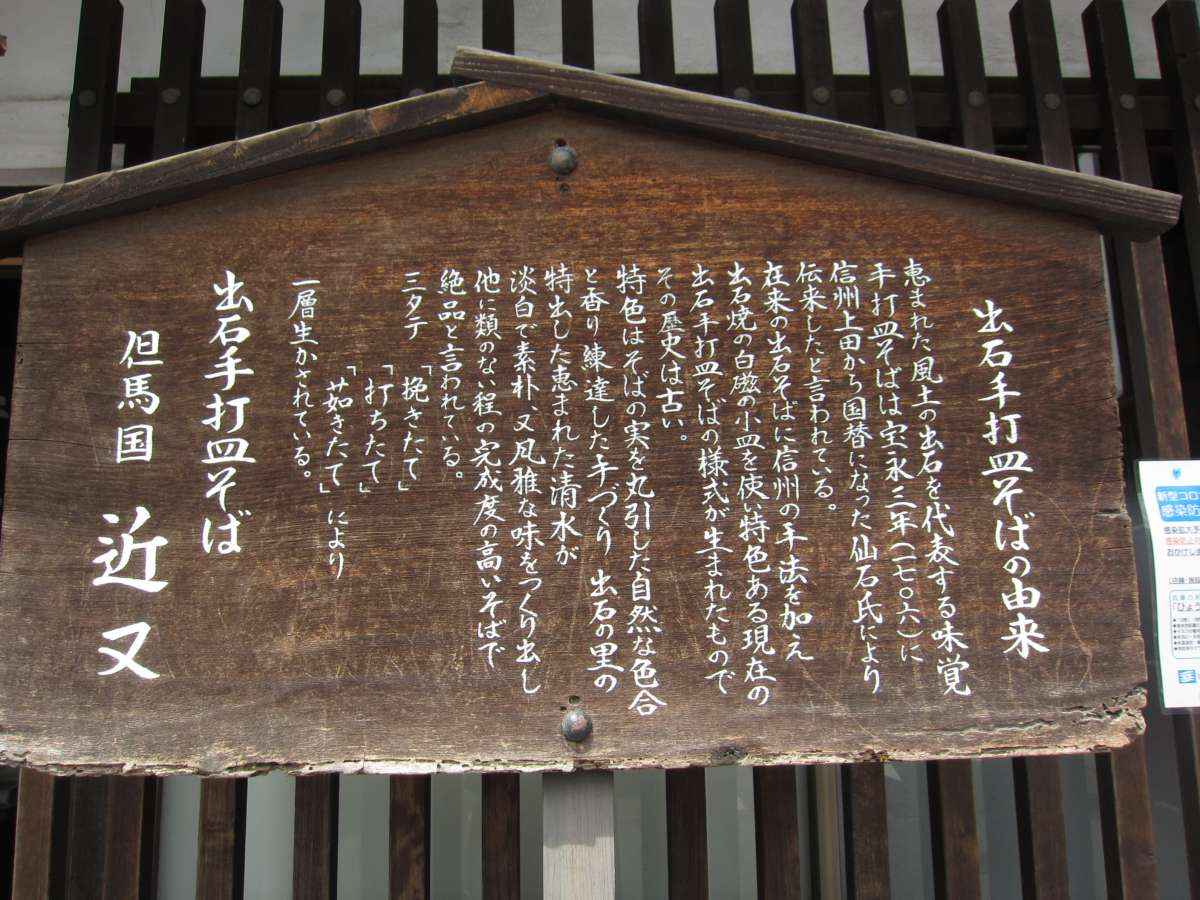 出石手打皿そばの由来
恵まれた風土の出石を代表する味覚
手打皿そばは宝永三年(一七〇六)に
信州上田から国替になった仙石氏により
伝来したと言われている。
在来の出石そばに信州の手法を加え
出石焼の白磁の小皿を使い特色ある現在の
出石手打皿そばの様式が生まれたもので
その歴史は古い。
特色はそばの実を丸引した自然な色合
と香り練達した手づくり 出石の里の
特出した恵まれた清水が
淡白で素朴、又風雅な味をつくり出し
他に類のない程の完成度の高いそばで
絶品と言われている。
三タテ 「挽きたて」
「打ちたて」
「茹きたて」により
一層生かされている。
出石手打皿そば
但馬国 近又
新型コロ
感染防
感染拡大予
おかけしま
「ひょう